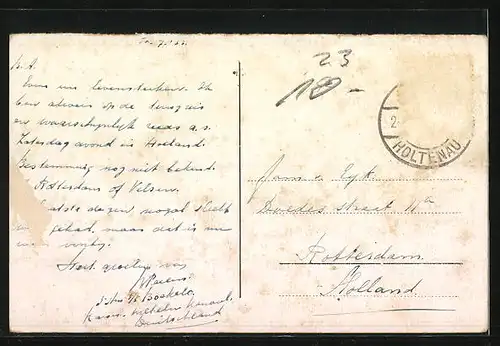 Even een levensteeken. Ik
ben alweer op de terugreis
en waarschijnlijk reeds a.s.
Zaterdag avond in Holland.
Bestemming nog niet bekend.
Rotterdam of Velsen.
laatste dagen nogal slecht
gehad, maar dat is nu
voorbij.
Hart. groeten van
s/s Boekelo
Kaiser Wilhelm Kanaal
Duitschland
23
180 -
2
HOLTENAU
Fam. v. Eyk.
straat
Rotterdam.
Holland.